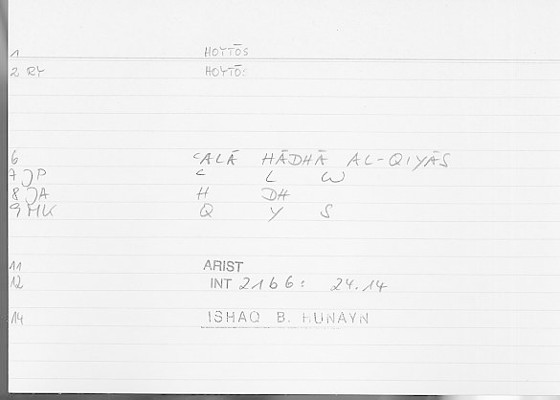 1 HOYTŌS
2 RY HOYTŌ:
6 ʿALĀ HĀDHĀ AL-QIYĀS
7 JP ʿ L W
8 JA H DH
9 MK Q Y S
11 ARIST
12 INT 21b6: 24.14
14 ISHAQ B. HUNAYN